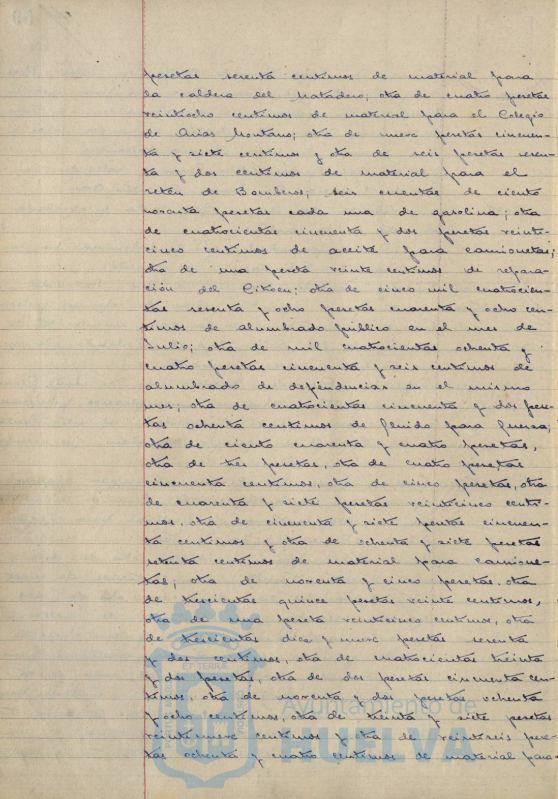 pesetas sesenta centimos de material para
la caldera del Matadero; otra de cuatro pesetas
veintiocho centimos de material para el Colegio
de Arias Montano; otra de nueve pesetas cincuen-
ta y siete centimos y otra de seis pesetas sesen-
ta y dos centimos de material para el
retén de Bomberos; seis cuentas de ciento
noventa pesetas cada una de gasolina; otra
de cuatrocientas cincuenta y dos pesetas veinti-
cinco centimos de aceite para camionetas;
otra de una peseta veinte centimos de repara-
ción del Citroen; otra de cinco mil cuatrocien-
tas sesenta y ocho pesetas cuarenta y ocho cen-
timos de alumbrado público en el mes de
Julio; otra de mil cuatrocientas ochenta y
cuatro pesetas cincuenta y seis centimos de
alumbrado de dependencias en el mismo
mes; otra de cuatrocientas cincuenta y dos pese-
tas ochenta centimos de fluido para fuerza;
otra de ciento cuarenta y cuatro pesetas,
otra de tres pesetas, otra de cuatro pesetas
cincuenta centimos, otra de cinco pesetas, otra
de cuarenta y siete pesetas veinticinco centi-
mos, otra de cincuenta y siete pesetas cincuen-
ta centimos y otra de ochenta y siete pesetas
setenta centimos de material para camione-
tas; otra de noventa y cinco pesetas, otra
de trescientas quince pesetas veinte centimos,
otra de una peseta veinticinco centimos, otra
de trescientas diez y nueve pesetas sesenta
y dos centimos, otra de cuatrocientas treinta
y dos pesetas, otra de dos pesetas cincuenta cen-
timos, otra de noventa y dos pesetas ochenta
y ocho centimos, otra de treinta y siete pesetas
veintinueve centimos y otra de veintiseis pese-
tas ochenta y cuatro centimos de material para
Ayuntamiento de
HUELVA